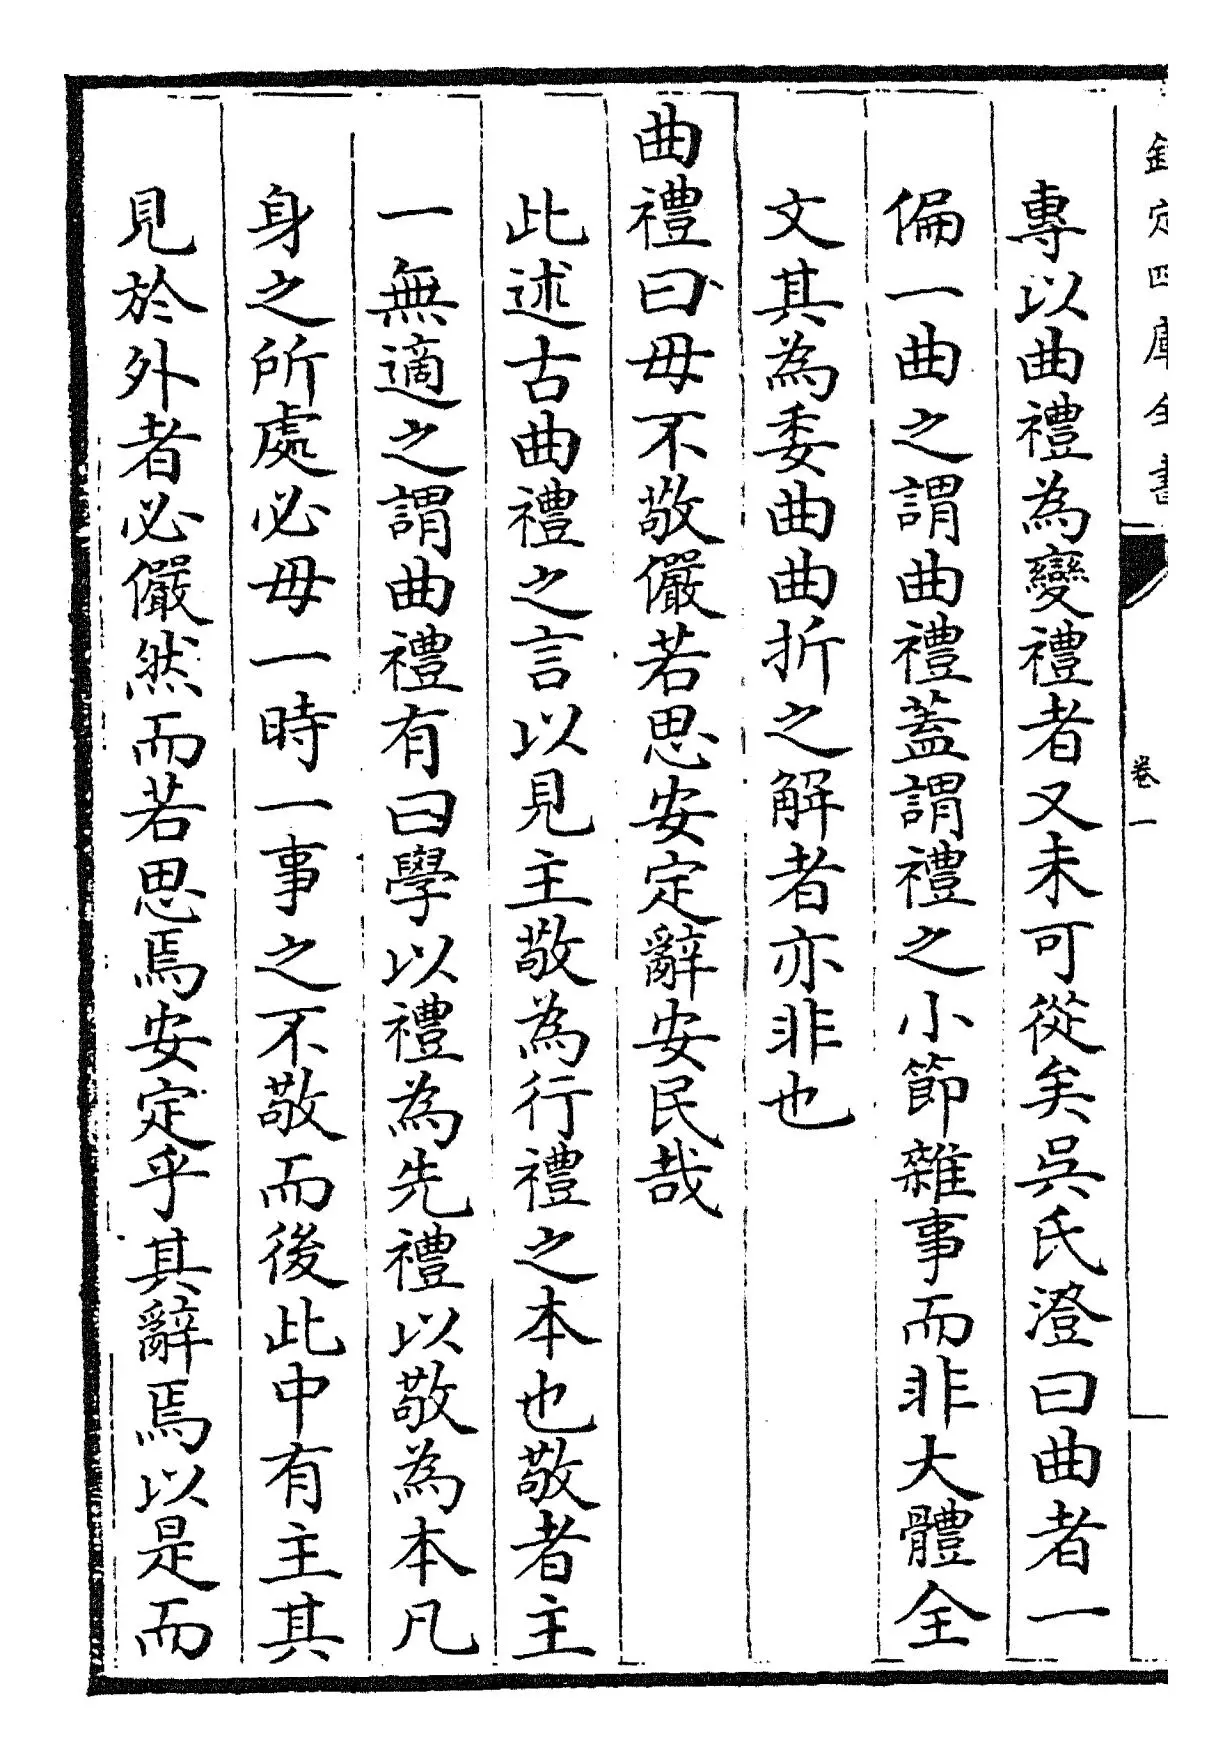 欽定四庫全書
卷一
專以曲禮為變禮者又未可從矣吳氏澄曰曲者一
偏一曲之謂曲禮蓋謂禮之小節雜事而非大體全
文其為委曲曲折之解者亦非也
曲禮曰毋不敬儼若思安定辭安民哉
此述古曲禮之言以見主敬為行禮之本也敬者主
一無適之謂曲禮有曰學以禮為先禮以敬為本凡
身之所處必毋一時一事之不敬而後此中有主其
見於外者必儼然而若思焉安定乎其辭焉以是而